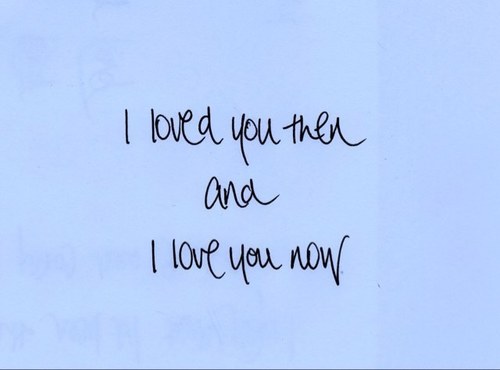 I loved you then
and
I love you now